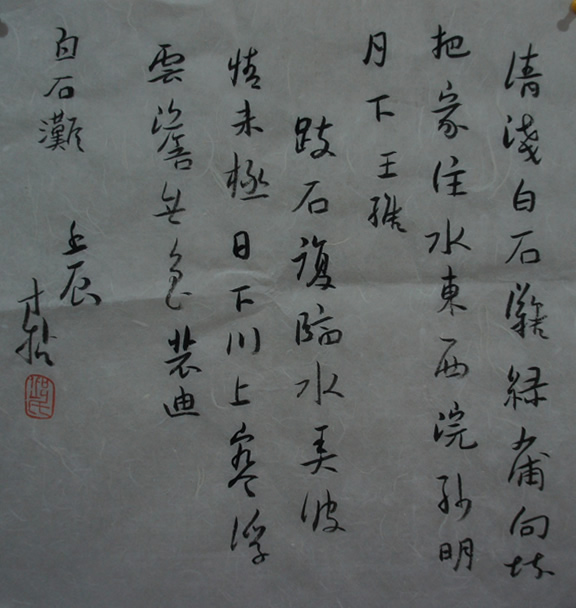 清淺白石灘綠蒲向堪
把家住水東西浣紗明
月下王維
跂石復臨水弄波
情未極日下川上寒浮
雲澹無色裴迪
白石灘
壬辰